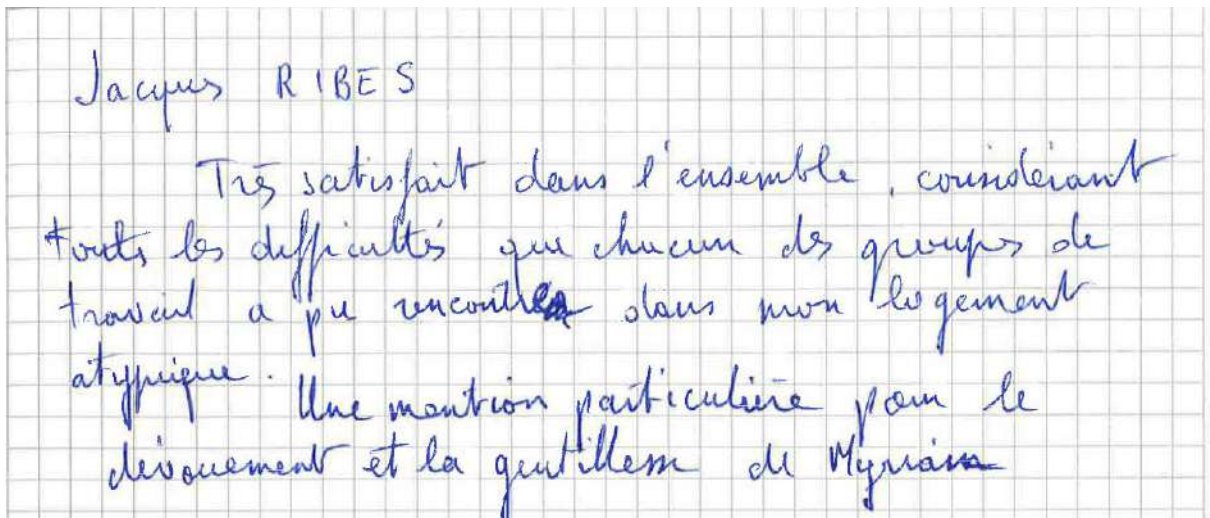 Jacques RIBES
Très satisfait dans l'ensemble, considérant
toutes les difficultés que chacun des groupes de
travail a pu rencontrer dans mon logement
atypique. Une mention particulière pour le
dévouement et la gentillesse de Myriam